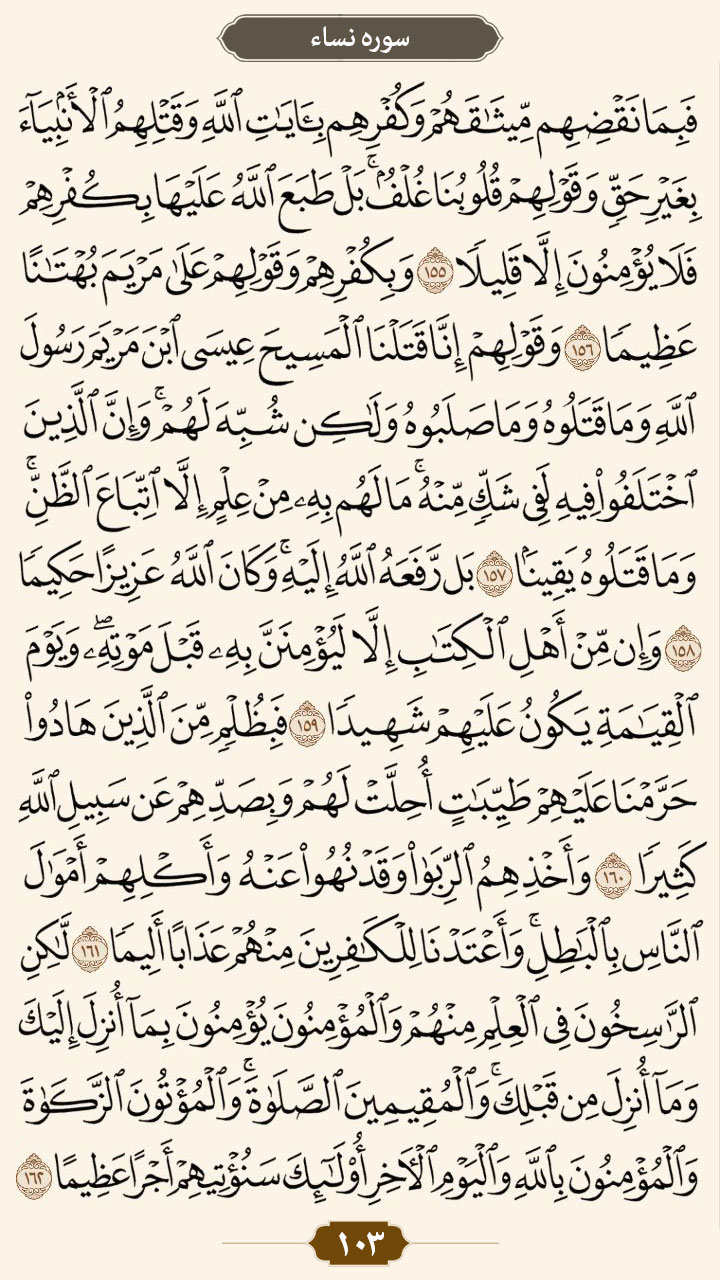 سوره نساء
فَبِمَا نَقْضِهِم مِّيثَـٰقَهُمْ وَكُفْرِهِم بِـَٔايَـٰتِ ٱللَّهِ وَقَتْلِهِمُ ٱلْأَنۢبِيَآءَ
بِغَيْرِ حَقٍّ وَقَوْلِهِمْ قُلُوبُنَا غُلْفٌۢ ۚ بَلْ طَبَعَ ٱللَّهُ عَلَيْهَا بِكُفْرِهِمْ
فَلَا يُؤْمِنُونَ إِلَّا قَلِيلًا ١٥٥ وَبِكُفْرِهِمْ وَقَوْلِهِمْ عَلَىٰ مَرْيَمَ بُهْتَـٰنًا
عَظِيمًا ١٥٦ وَقَوْلِهِمْ إِنَّا قَتَلْنَا ٱلْمَسِيحَ عِيسَى ٱبْنَ مَرْيَمَ رَسُولَ
ٱللَّهِ وَمَا قَتَلُوهُ وَمَا صَلَبُوهُ وَلَـٰكِن شُبِّهَ لَهُمْ ۚ وَإِنَّ ٱلَّذِينَ
ٱخْتَلَفُوا۟ فِيهِ لَفِى شَكٍّ مِّنْهُ ۚ مَا لَهُم بِهِۦ مِنْ عِلْمٍ إِلَّا ٱتِّبَاعَ ٱلظَّنِّ ۚ
وَمَا قَتَلُوهُ يَقِينًۢا ١٥٧ بَل رَّفَعَهُ ٱللَّهُ إِلَيْهِ ۚ وَكَانَ ٱللَّهُ عَزِيزًا حَكِيمًا
١٥٨ وَإِن مِّنْ أَهْلِ ٱلْكِتَـٰبِ إِلَّا لَيُؤْمِنَنَّ بِهِۦ قَبْلَ مَوْتِهِۦ ۖ وَيَوْمَ
ٱلْقِيَـٰمَةِ يَكُونُ عَلَيْهِمْ شَهِيدًا ١٥٩ فَبِظُلْمٍ مِّنَ ٱلَّذِينَ هَادُوا۟
حَرَّمْنَا عَلَيْهِمْ طَيِّبَـٰتٍ أُحِلَّتْ لَهُمْ وَبِصَدِّهِمْ عَن سَبِيلِ ٱللَّهِ
كَثِيرًا ١٦٠ وَأَخْذِهِمُ ٱلرِّبَوٰا۟ وَقَدْ نُهُوا۟ عَنْهُ وَأَكْلِهِمْ أَمْوَٰلَ
ٱلنَّاسِ بِٱلْبَـٰطِلِ ۚ وَأَعْتَدْنَا لِلْكَـٰفِرِينَ مِنْهُمْ عَذَابًا أَلِيمًا ١٦١ لَّـٰكِنِ
ٱلرَّٰسِخُونَ فِى ٱلْعِلْمِ مِنْهُمْ وَٱلْمُؤْمِنُونَ يُؤْمِنُونَ بِمَآ أُنزِلَ إِلَيْكَ
وَمَآ أُنزِلَ مِن قَبْلِكَ ۚ وَٱلْمُقِيمِينَ ٱلصَّلَوٰةَ ۚ وَٱلْمُؤْتُونَ ٱلزَّكَوٰةَ
وَٱلْمُؤْمِنُونَ بِٱللَّهِ وَٱلْيَوْمِ ٱلْـَٔاخِرِ أُو۟لَـٰٓئِكَ سَنُؤْتِيهِمْ أَجْرًا عَظِيمًا ١٦٢
١٠٣